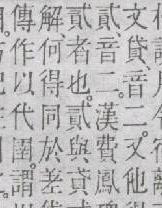 文貸、音二。又他得
貳、音二。漢費鳳
貳者也。貳與貸
解、何得同於差
傳作以代圉。謂